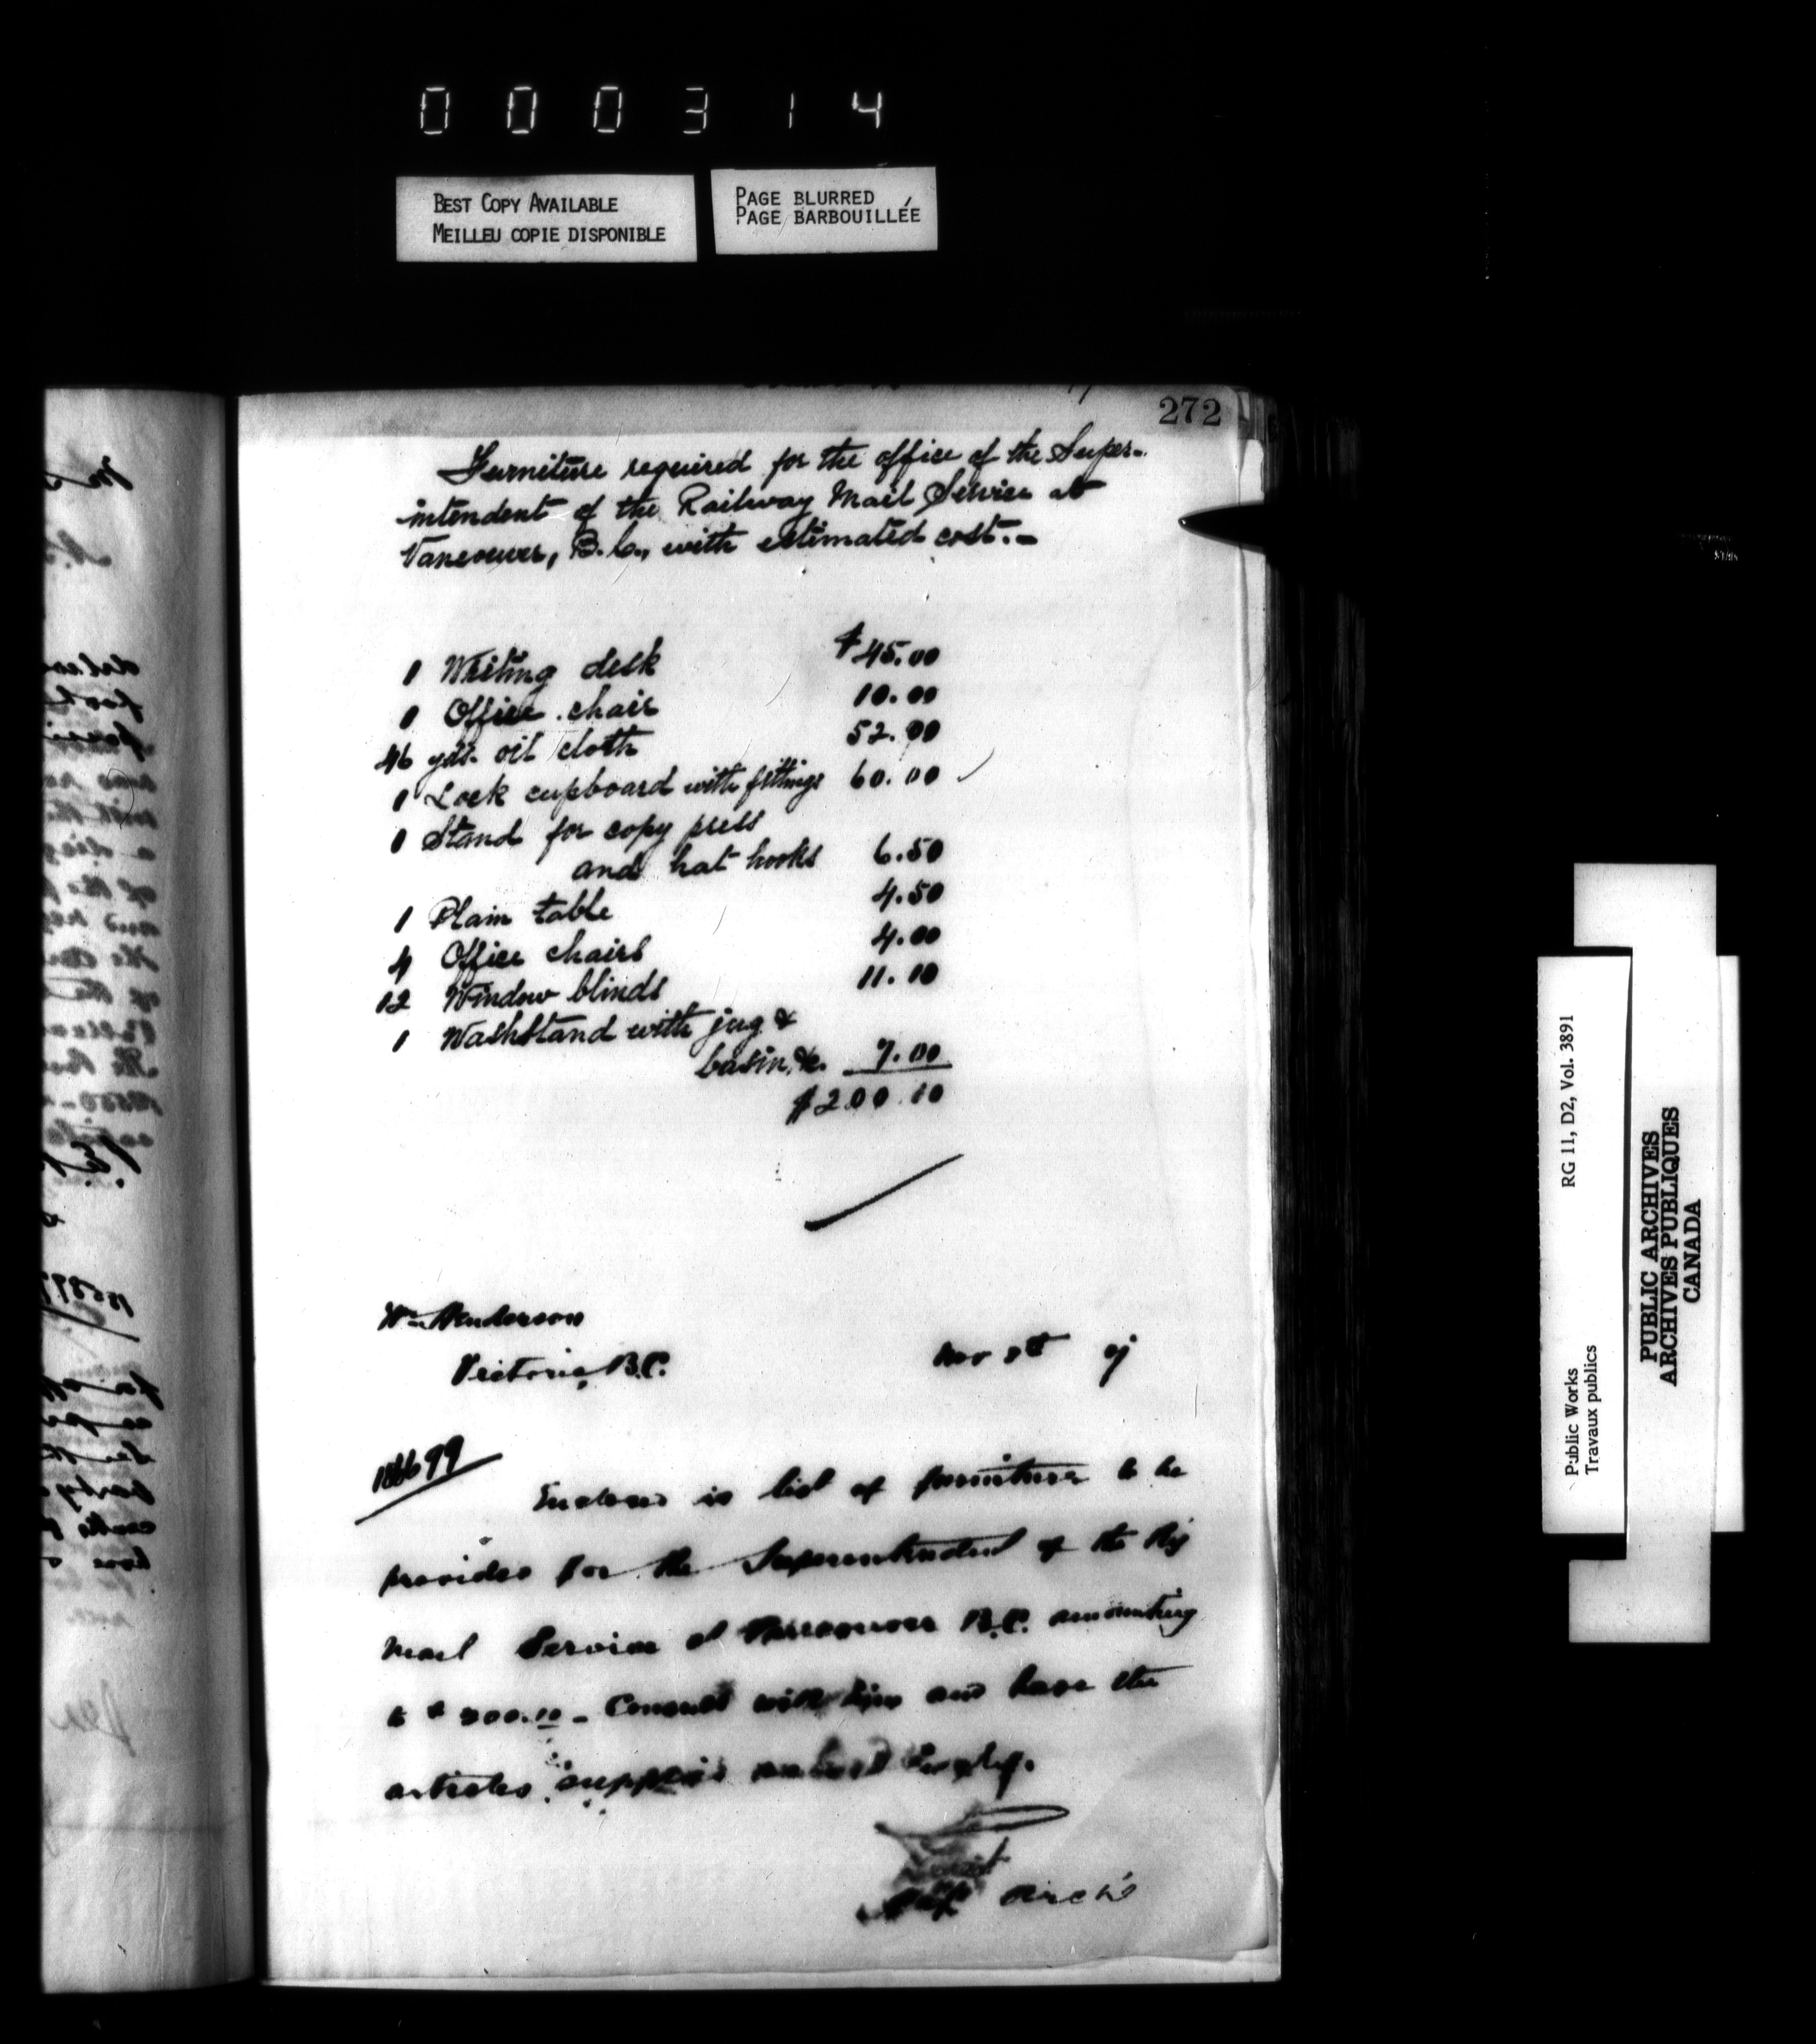 0 0 0 3 1 4
BEST COPY AVAILABLE
MEILLEU COPIE DISPONIBLE
PAGE BLURRED
PAGE BARBOUILLÉE
272
Furniture required for the office of the Super-
intendent of the Railway Mail Service at
Vancouver, B.C., with estimated cost.-
1 Writing desk $45.00
1 Office chair 10.00
46 yds. oil cloth 52.00
1 Lock cupboard with fittings 60.00
1 Stand for copy press
and hat hooks 6.50
1 Plain table 4.50
4 Office chairs 4.00
12 Window blinds 11.10
1 Washstand with jug &
basin, &c. 7.00
$200.10
Wm Henderson
Victoria, B.C.
Nov 8th
Enclosed is list of furniture to be
provided for the Superintendent of the Ry
Mail Service at Vancouver B.C. amounting
to $200.10 - Consult with him and have the
articles supplied
Arch't
RG 11, D2, Vol. 3891
Public Works
Travaux publics
PUBLIC ARCHIVES
ARCHIVES PUBLIQUES
CANADA